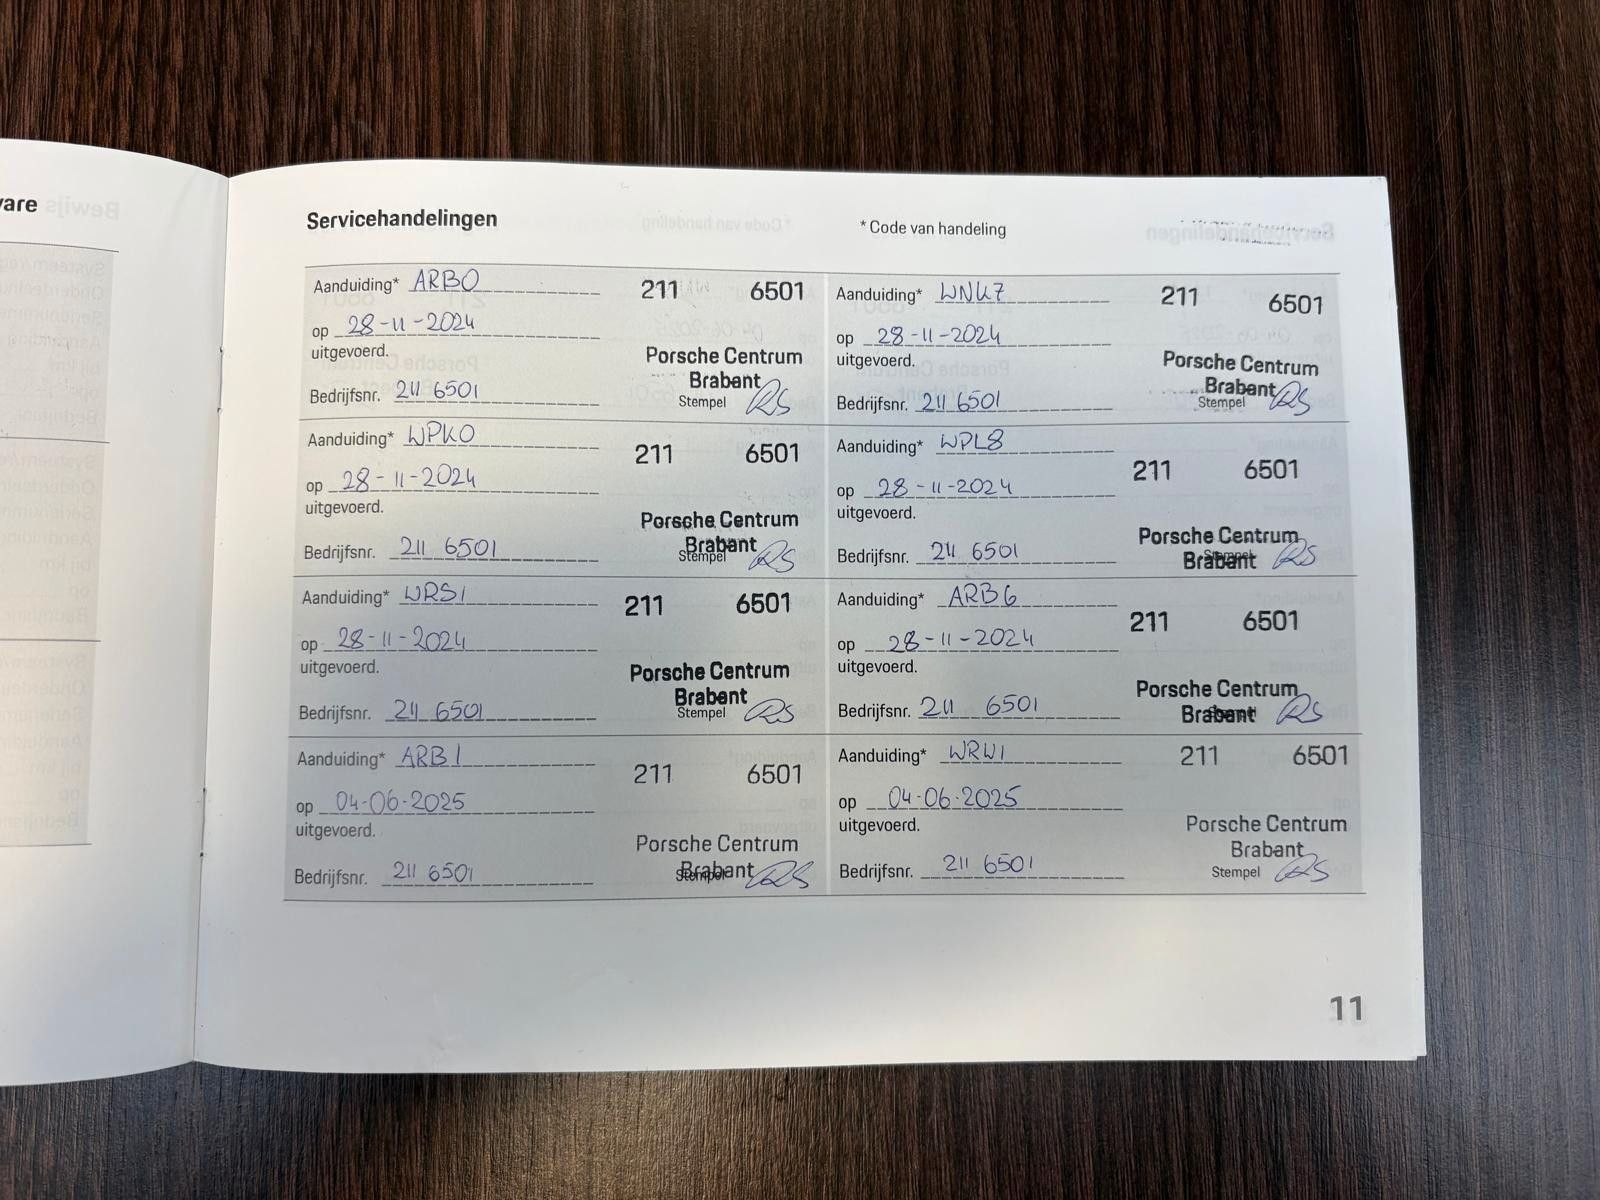 are
Servicehandelingen
* Code van handeling
Aanduiding* ARB0
op 28-11-2024
uitgevoerd.
Bedrijfsnr. 211 6501
211 6501
Porsche Centrum
Brabant
Stempel RS
Aanduiding* WNK7
op 28-11-2024
uitgevoerd.
Bedrijfsnr. 211 6501
211 6501
Porsche Centrum
Brabant
Stempel RS
Aanduiding* WPK0
op 28-11-2024
uitgevoerd.
Bedrijfsnr. 211 6501
211 6501
Porsche Centrum
Brabant
Stempel RS
Aanduiding* WPL8
op 28-11-2024
uitgevoerd.
Bedrijfsnr. 211 6501
211 6501
Porsche Centrum
Brabant
Stempel RS
Aanduiding* WRS1
op 28-11-2024
uitgevoerd.
Bedrijfsnr. 211 6501
211 6501
Porsche Centrum
Brabant
Stempel RS
Aanduiding* ARB6
op 28-11-2024
uitgevoerd.
Bedrijfsnr. 211 6501
211 6501
Porsche Centrum
Brabant
Stempel RS
Aanduiding* ARB1
op 04-06-2025
uitgevoerd.
Bedrijfsnr. 211 6501
211 6501
Porsche Centrum
Brabant
Stempel RS
Aanduiding* WRW1
op 04-06-2025
uitgevoerd.
Bedrijfsnr. 211 6501
211 6501
Porsche Centrum
Brabant
Stempel RS
11